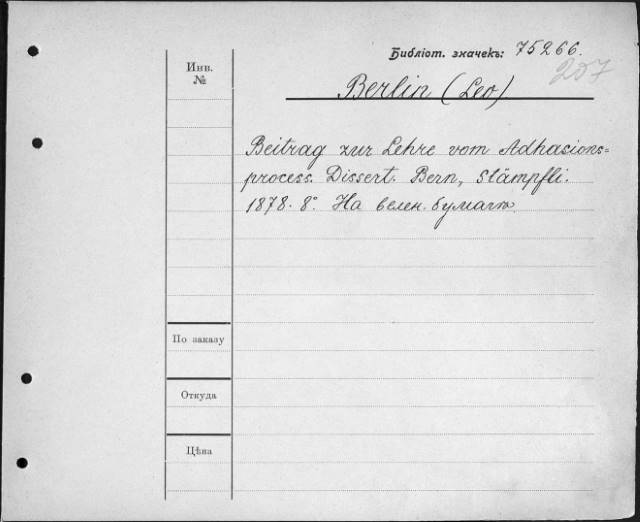 Библіот. значекъ: 75266.
207
Инв.
№
Berlin (Leo)
Beitrag zur Lehre vom Adhasions=
process. Dissert. Bern, Stämpfli.
1878. 8°. На велен. бумагѣ.
По заказу
Откуда
Цѣна